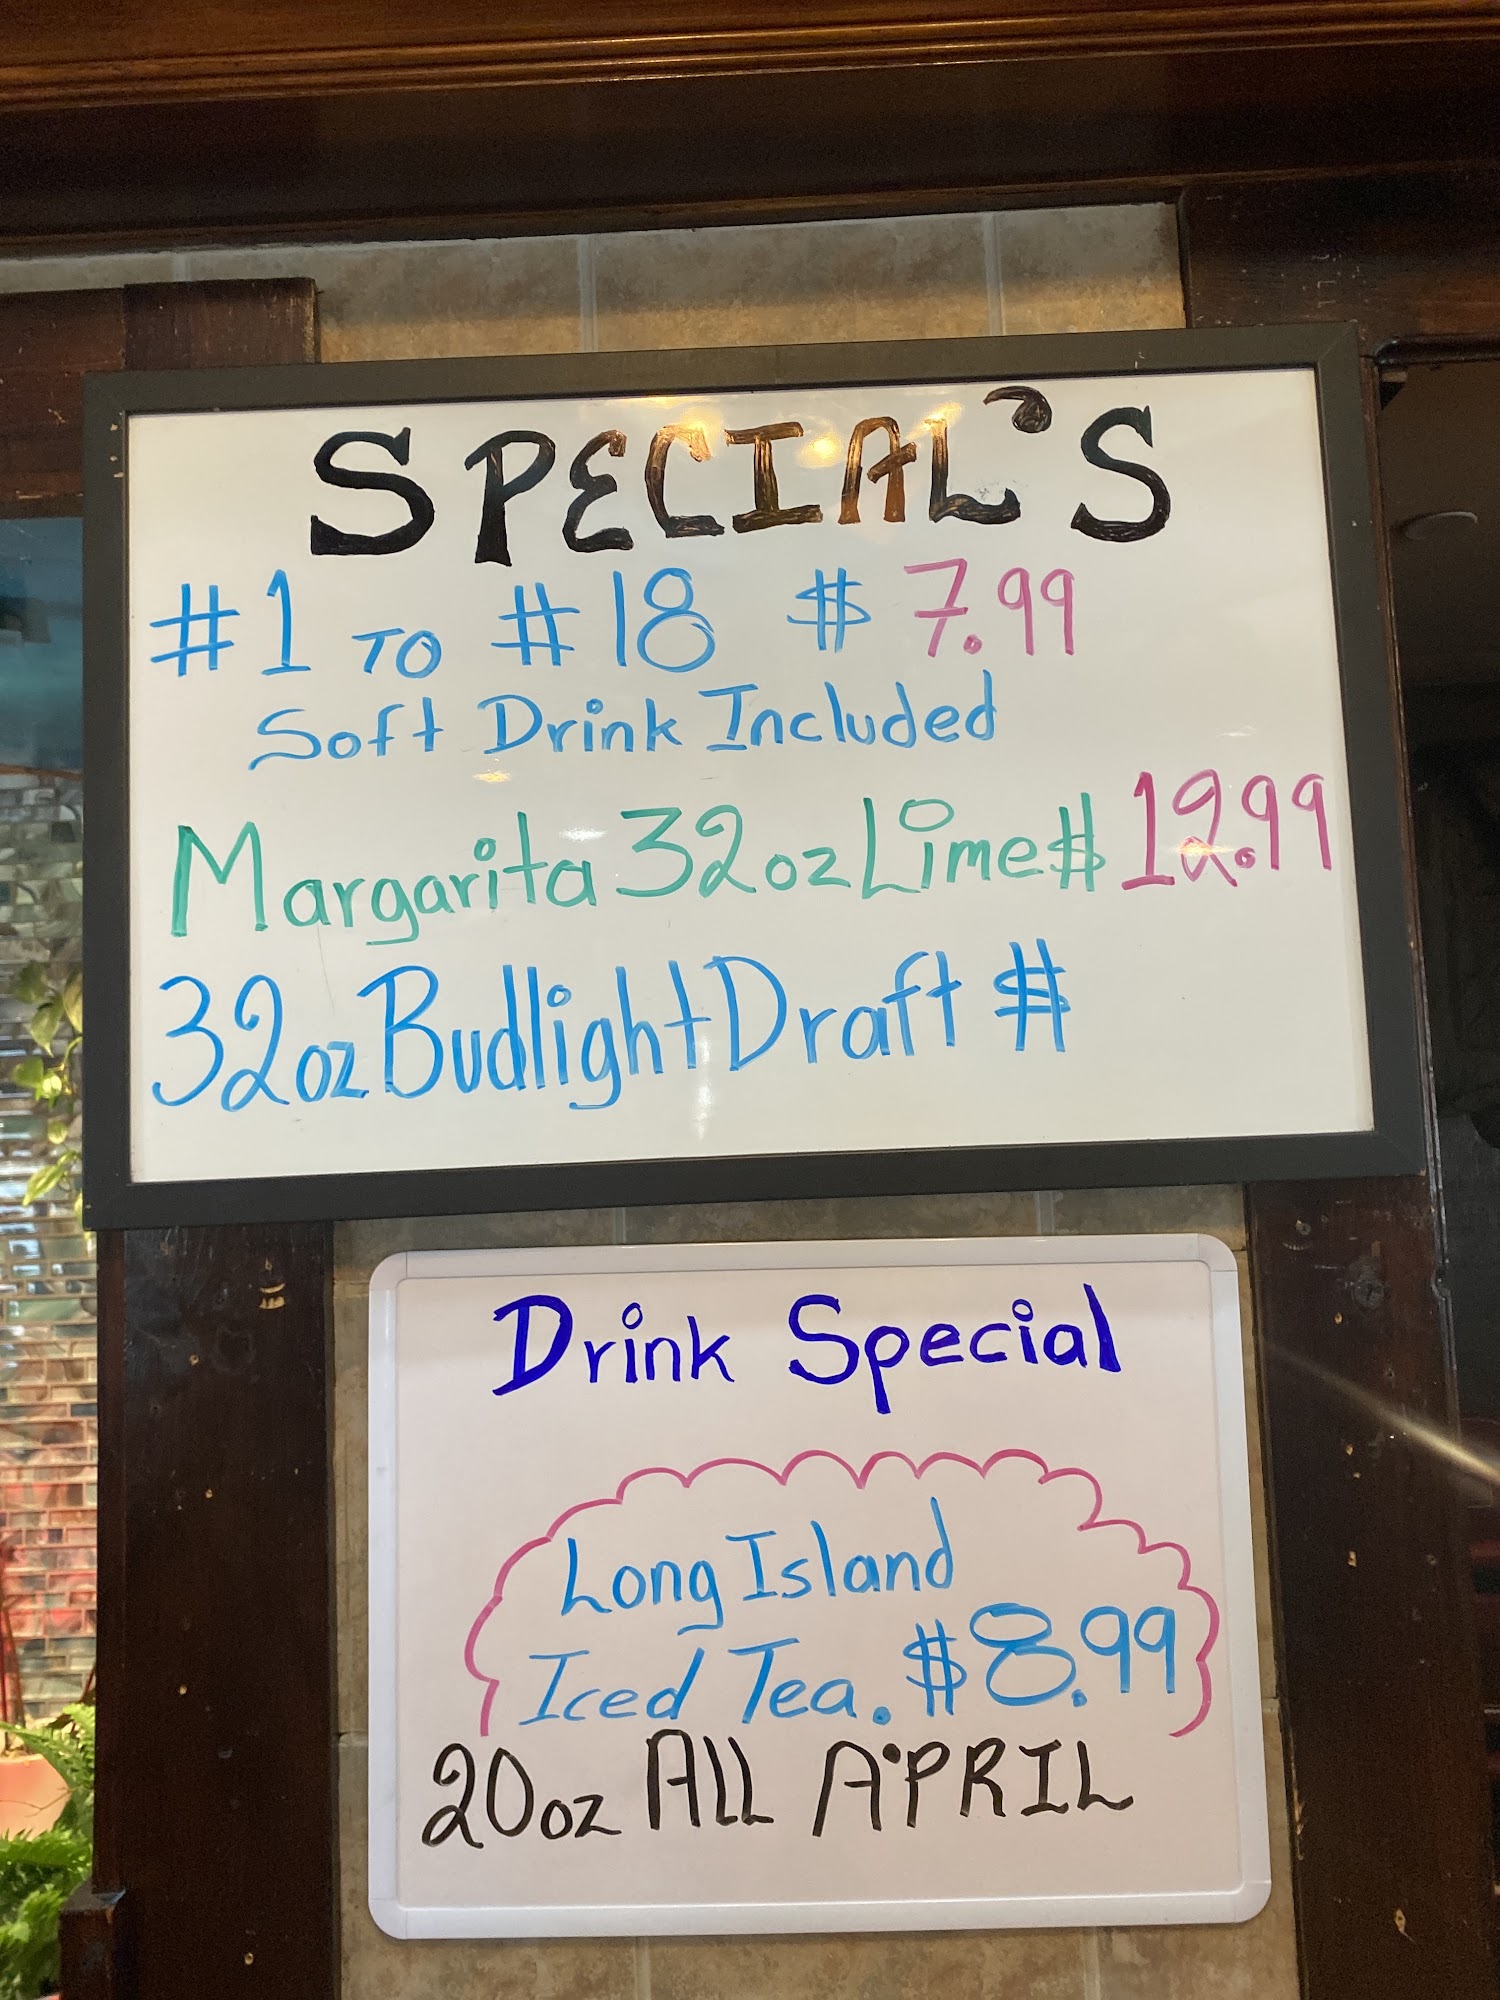 SPECIAL'S
#1 TO #18 $7.99
Soft Drink Included
Margarita 32oz Lime $12.99
32oz Budlight Draft $
Drink Special
Long Island
Iced Tea. $8.99
20oz All APRIL